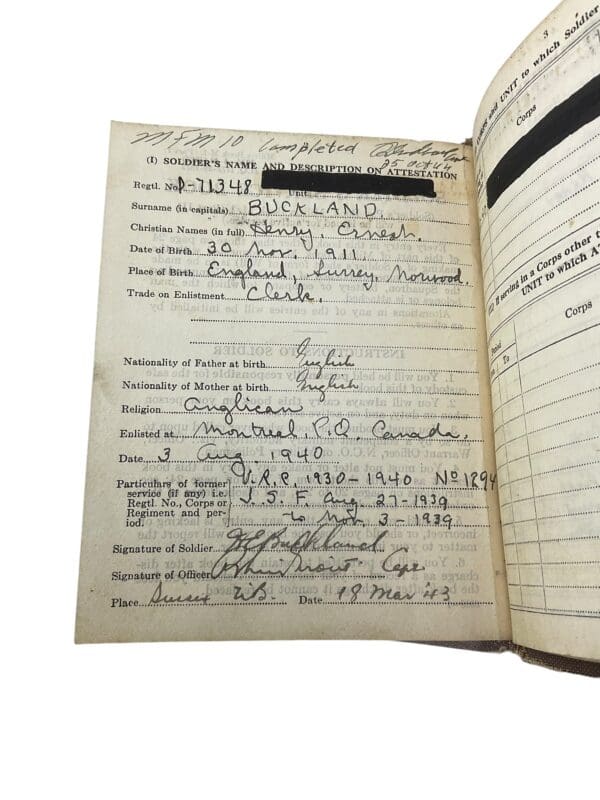 MFM 10 Completed
25 Oct 44
(I) SOLDIER'S NAME AND DESCRIPTION ON ATTESTATION
Regtl. No. D-71348 Unit
Surname (in capitals) BUCKLAND.
Christian Names (in full) Henry, Ernest.
Date of Birth 30 Nov. 1911.
Place of Birth England, Surrey, Norwood.
Trade on Enlistment Clerk.
Nationality of Father at birth English
Nationality of Mother at birth English
Religion Anglican
Enlisted at Montreal, P.Q. Canada.
Date 3 Aug 1940
Particulars of former service (if any) i.e. Regtl. No., Corps or Regiment and period.
V.R.C. 1930-1940 No 1894
J.S.F. Aug. 27-1939
to Nov. 3-1939
Signature of Soldier HE Buckland
Signature of Officer Capt
Place Sussex N.B. Date 18 Mar 43
3
CORPS and UNIT to which Soldier
Corps
If serving in a Corps other
UNIT to which
Corps
Period
To